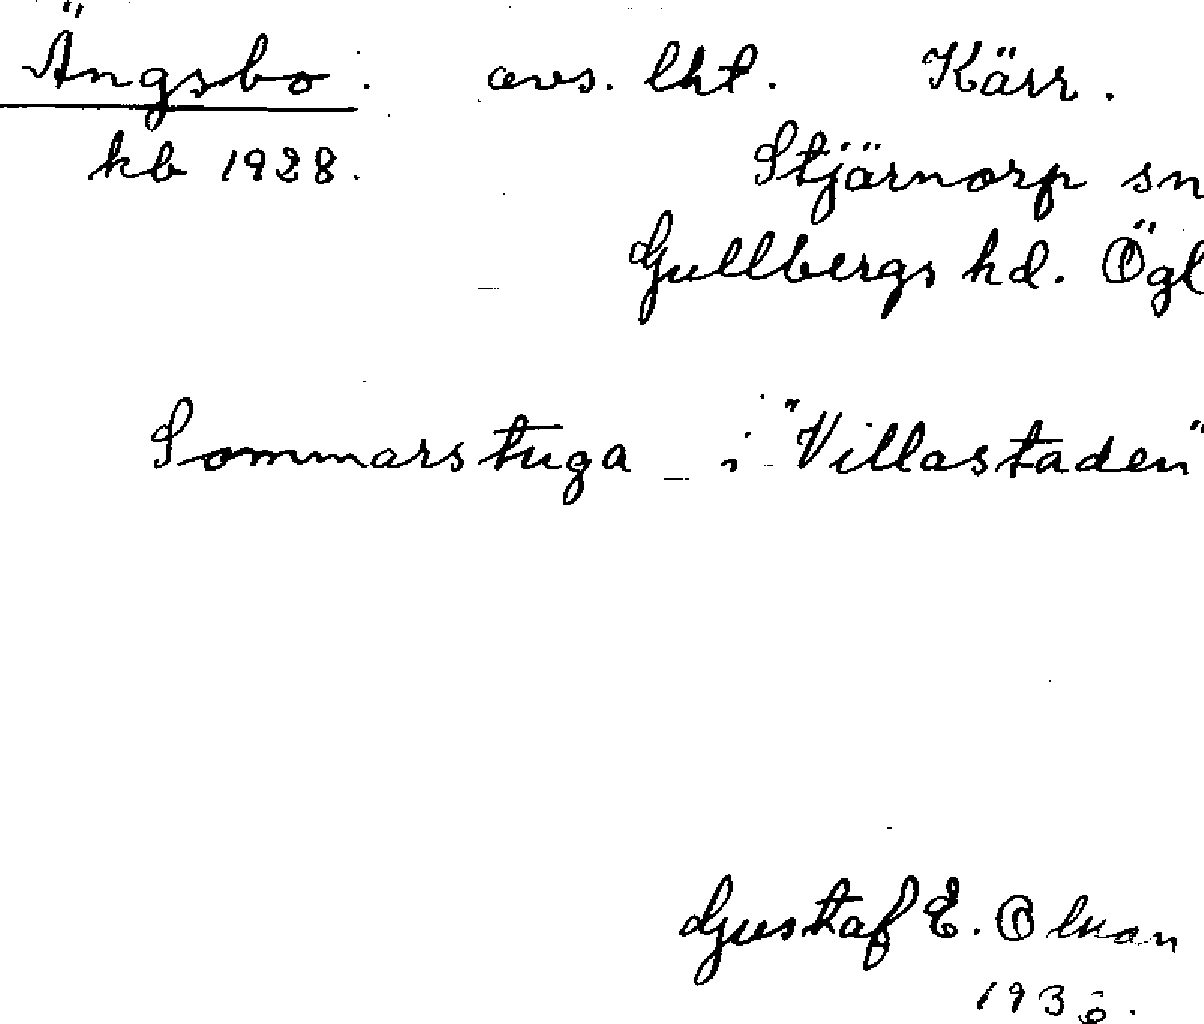 Ängsbo. avs. lht. Kärr.
kb 1928. Stjärnorp sn
Gullbergs hd. Ögl
Sommarstuga i "Villastaden"
Gustaf E. Olson
1936.